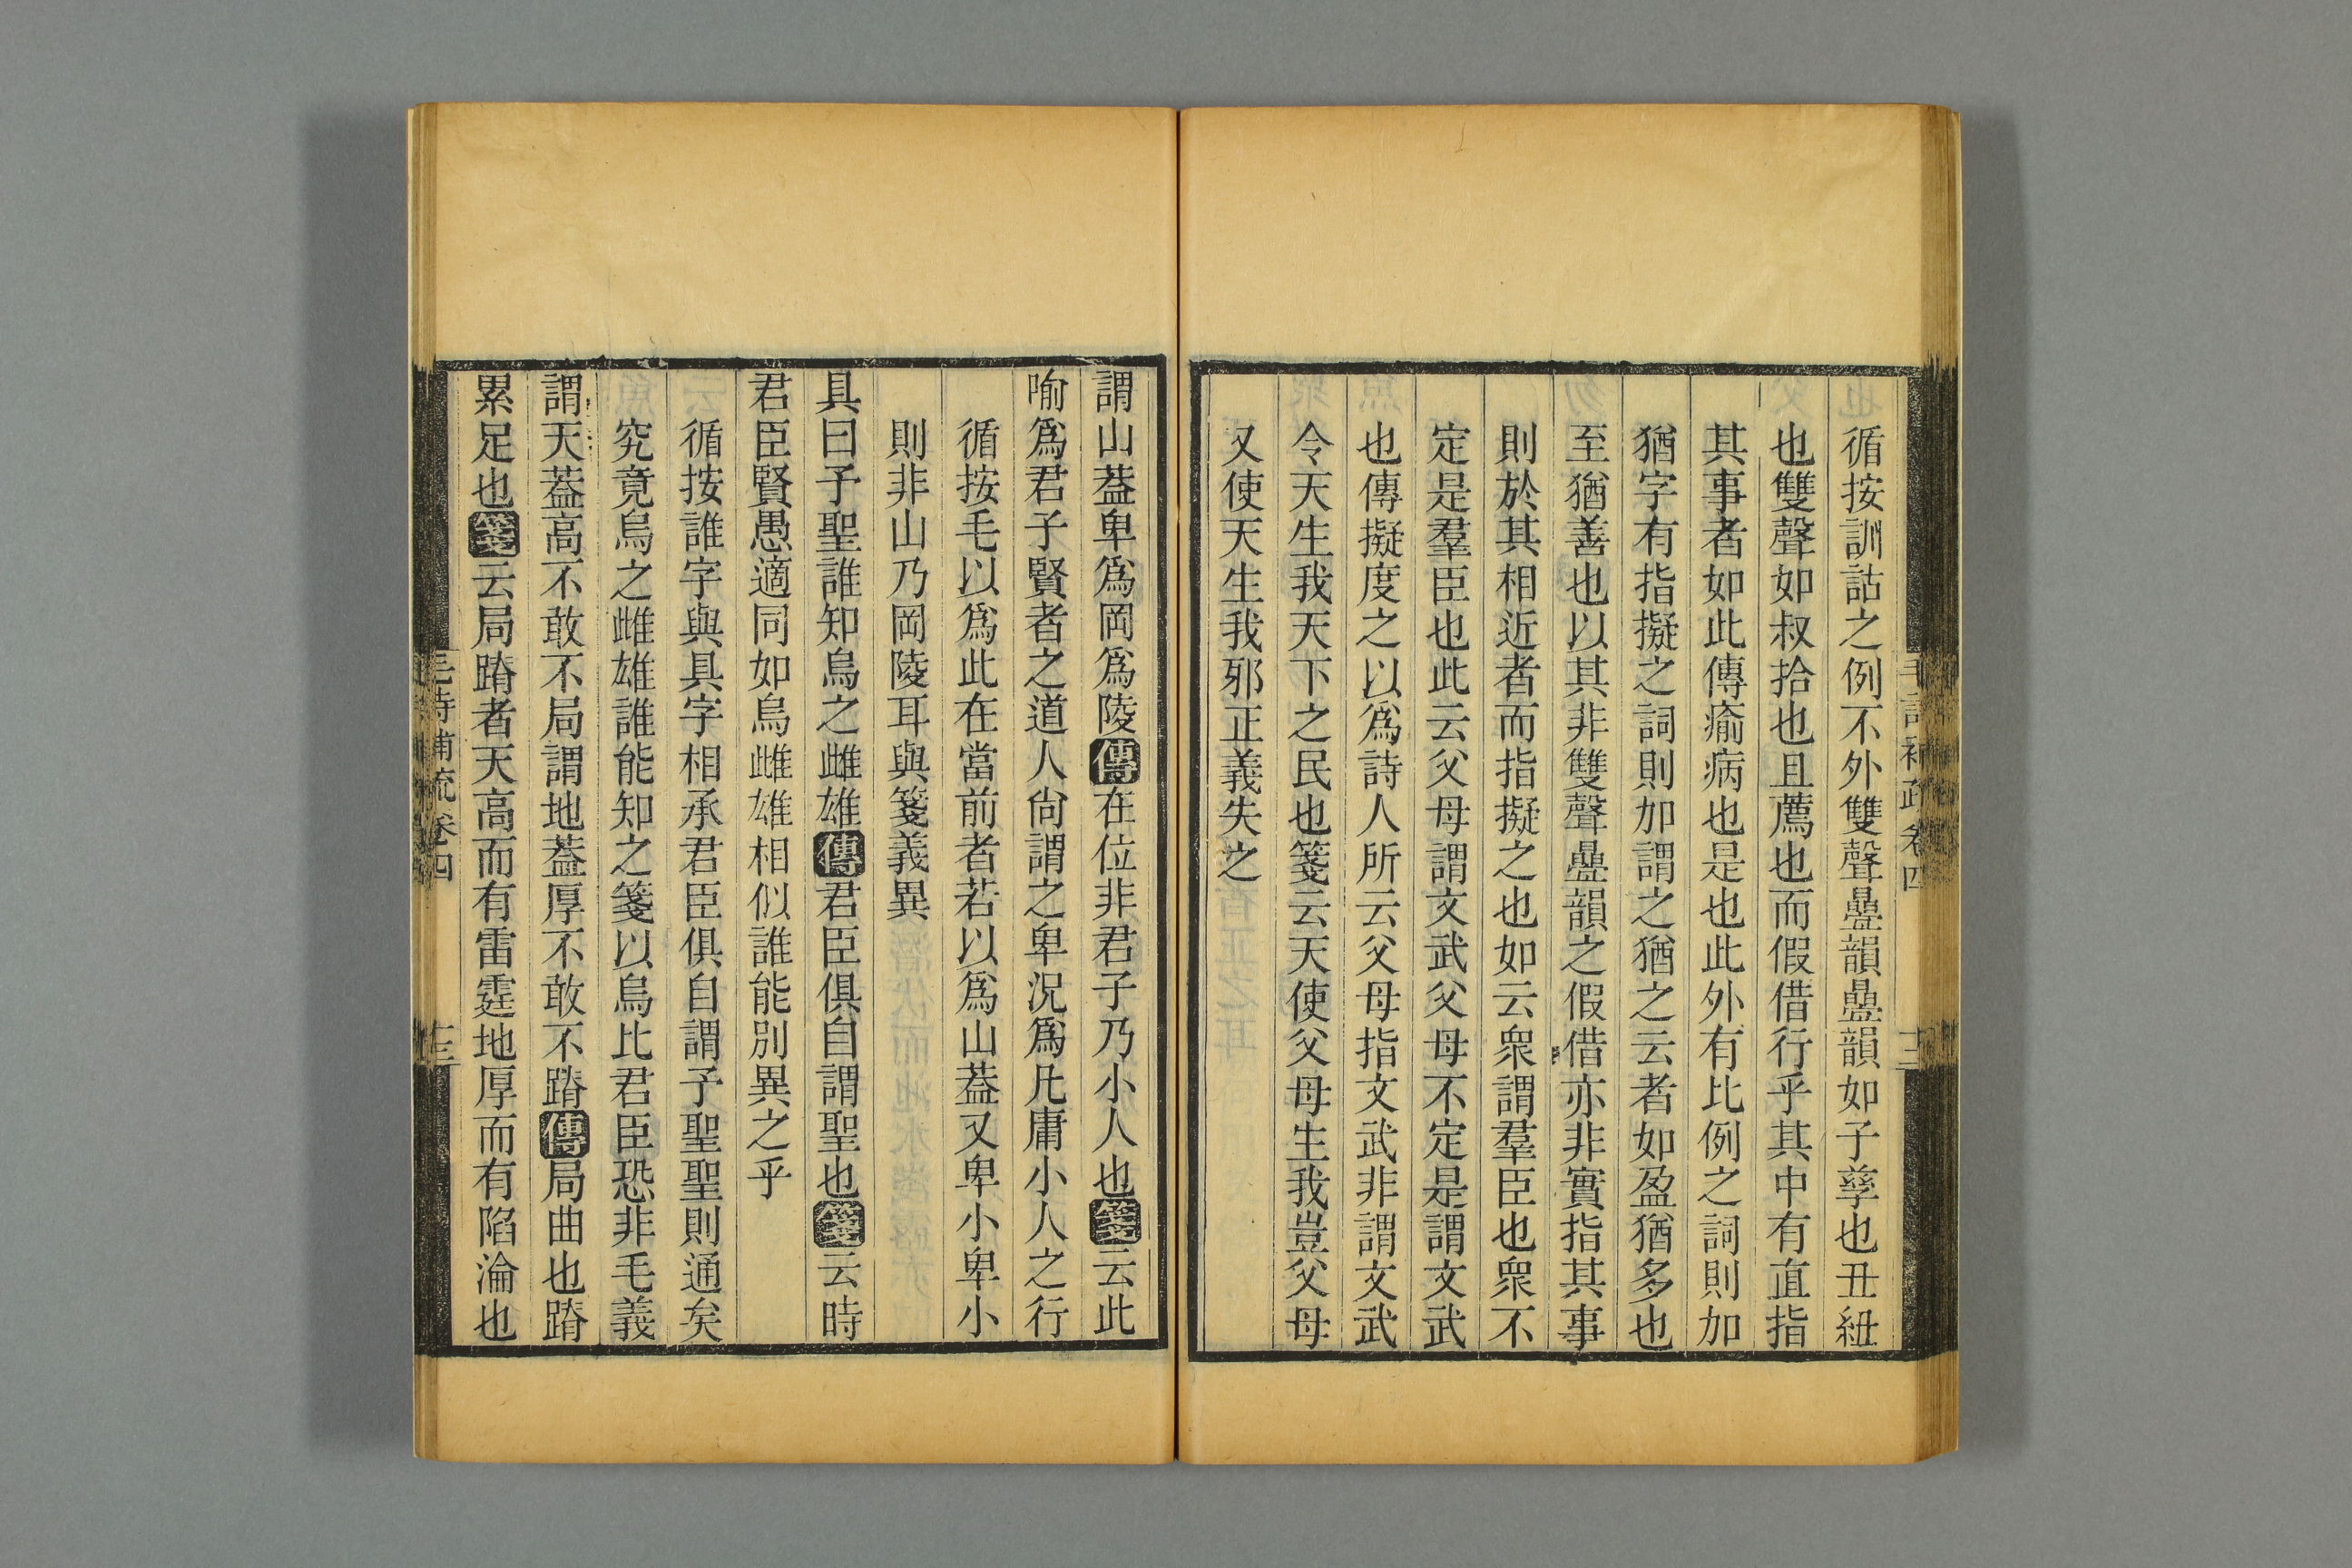 循按訓詁之例不外雙聲疊韻疊韻如子孳也丑紐
也雙聲如叔拾也且薦也而假借行乎其中有直指
其事者如此傳瘉病也是也此外有比例之詞則加
猶字有指擬之詞則加謂之猶之云者如盈猶多也
至猶善也以其非雙聲疊韻之假借亦非實指其事
則於其相近者而指擬之也如云衆謂羣臣也衆不
定是羣臣也此云父母謂文武父母不定是謂文武
也傳擬度之以爲詩人所云父母指文武非謂文武
令天生我天下之民也箋云天使父母生我豈父母
又使天生我邪正義失之
謂山蓋卑爲岡爲陵傳在位非君子乃小人也箋云此
喻爲君子賢者之道人尙謂之卑況爲凡庸小人之行
循按毛以爲此在當前者若以爲山蓋又卑小卑小
則非山乃岡陵耳與箋義異
具曰予聖誰知烏之雌雄傳君臣俱自謂聖也箋云時
君臣賢愚適同如烏雌雄相似誰能別異之乎
循按誰字與具字相承君臣俱自謂予聖聖則通矣
究竟烏之雌雄誰能知之箋以烏比君臣恐非毛義
謂天蓋高不敢不局謂地蓋厚不敢不蹐傳局曲也蹐
累足也箋云局蹐者天高而有雷霆地厚而有陷淪也
毛詩補疏卷四
十三